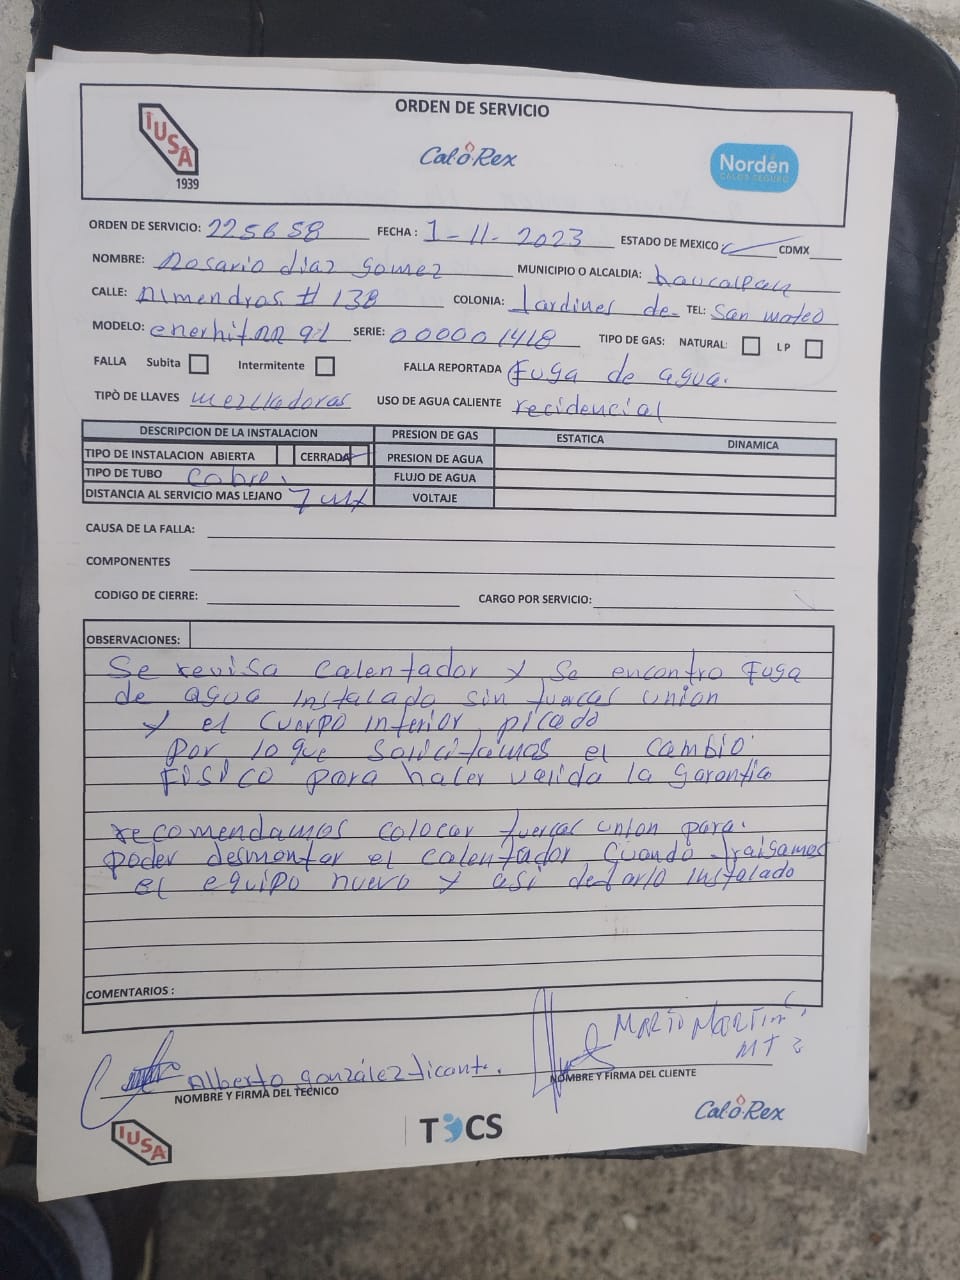 ORDEN DE SERVICIO
IUSA
1939
CaloRex
Nordén
CALOR SEGURO
ORDEN DE SERVICIO: 225658 FECHA: 1-11-2023 ESTADO DE MEXICO CDMX
NOMBRE: Rosario diaz gomez MUNICIPIO O ALCALDIA: naucalpan
CALLE: Almendros # 138 COLONIA: Jardines de TEL: San mateo
MODELO: SERIE: 000001418 TIPO DE GAS: NATURAL: LP
FALLA Subita Intermitente FALLA REPORTADA Fuga de agua.
TIPÒ DE LLAVES mezcladoras USO DE AGUA CALIENTE recidencial
DESCRIPCION DE LA INSTALACION PRESION DE GAS ESTATICA DINAMICA
TIPO DE INSTALACION ABIERTA CERRADA PRESION DE AGUA
TIPO DE TUBO Cobre. FLUJO DE AGUA
DISTANCIA AL SERVICIO MAS LEJANO 7 VOLTAJE
CAUSA DE LA FALLA:
COMPONENTES
CODIGO DE CIERRE: CARGO POR SERVICIO:
OBSERVACIONES:
Se revisa calentador y se encontro Fuga
de agua instalado sin tuercas union
y el cuerpo inferior picado
por lo que solicitamos el cambio
Fisico para hacer valida la garantia
recomendamos colocar tuercas union para.
poder desmontar el calentador cuando traigamos
el equipo nuevo y asi dejarlo instalado
COMENTARIOS :
Alberto gonzález
NOMBRE Y FIRMA DEL TECNICO
MARIO
NOMBRE Y FIRMA DEL CLIENTE
IUSA
TICS
CaloRex